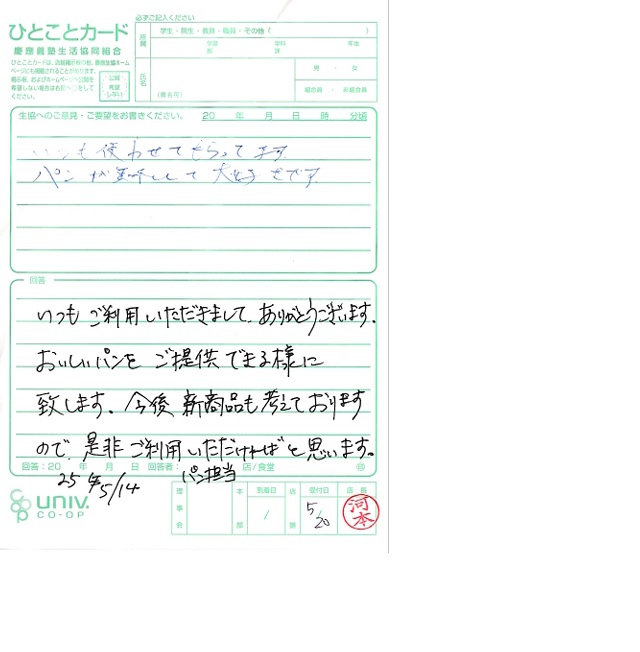 必ずご記入ください
ひとことカード
慶應義塾生活協同組合
ひとことカードは、店頭掲示板の他、慶應生協ホームページにも掲載されることがあります。
所属
学生・院生・教員・職員・その他( )
学部 学科 年生
氏名
(匿名可)
男 ・ 女
組合員 ・ 非組合員
公開
希望
しない
生協へのご意見・ご要望をお書きください。 20 年 月 日 時 分頃
いつも使わせてもらってます。
パンが美味しくて大好きです。
回答
いつもご利用いただきまして、ありがとうございます。
おいしいパンをご提供できる様に
致します。今後新商品も考えております
ので、是非ご利用いただければと思います。
回答:20 年 月 日 回答者: 店/食堂 ㊞
25 年 5/14 パン担当
UNIV.
CO-OP
理事会 本部 到着日 / 店舗 受付日 5/20 店長 河本